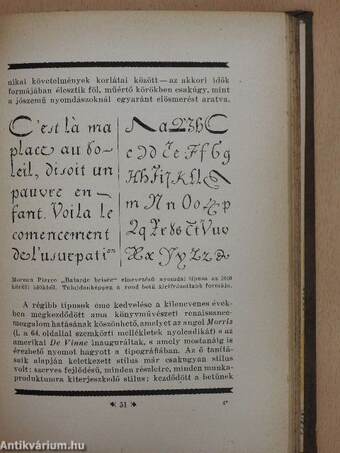 nikai követelmények korlátai között — az akkori idők
formájában élesztik föl, műértő körökben csakúgy, mint
a jószemű nyomdászoknál egyaránt elösmerést aratva.
C'est là ma
place au so-
leil, disoit un
pauvre en-
fant. Voila le
comencement
de l'usurpation
Moreau Pierre „Batarde brisée" elnevezésű nyomdai típusa az
körüli időkből. Tulajdonképpen a rond betű formája.
A régibb típusok eme kedvelése a kilencvenes évek-
ben megkezdődött ama könyvművészeti renaissance-
mozgalom hatásának köszönhető, amelyet az angol Morris
(l. a 64. oldallal szemközti mellékletek nyolcadikát) s az
amerikai De Vinne inauguráltak, s amely mostanáig is
érezhető nyomot hagyott a tipográfiában. Az ő tanítá-
saik alapján keletkezett stílus már csakugyan stílus
volt: szerves fejlődésű, minden részletre, minden munka-
produktumra kiterjeszkedő stílus; kezdődött a betűnek
51
4*
antikvárium.hu